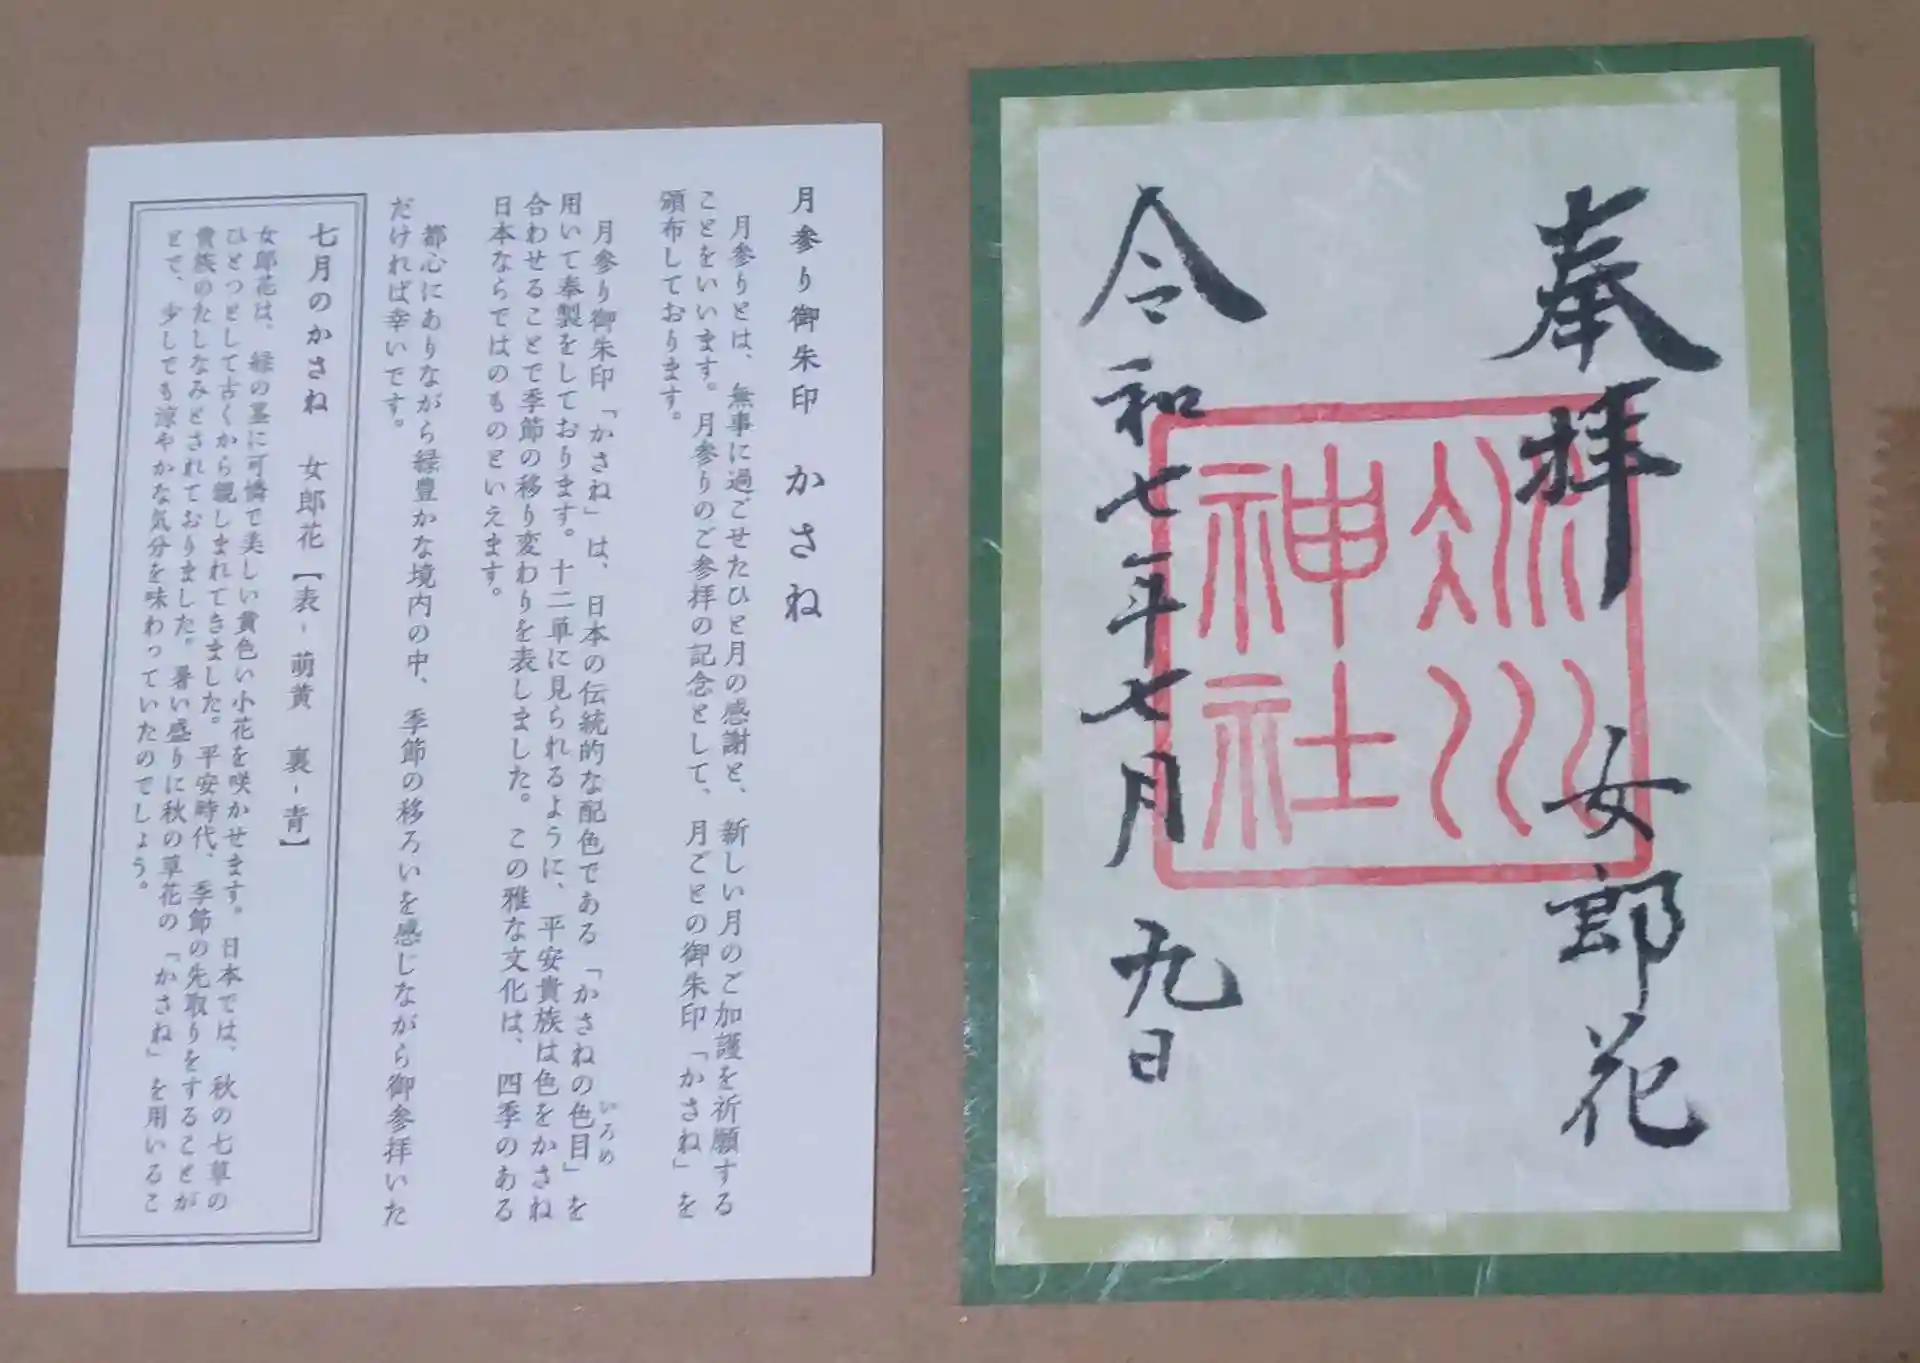 奉拝
女郎花
氷川
神社
令和七年七月九日
月参り御朱印 かさね
月参りとは、無事に過ごせたひと月の感謝と、新しい月のご加護を祈願する
ことをいいます。月参りのご参拝の記念として、月ごとの御朱印「かさね」を
頒布しております。
月参り御朱印「かさね」は、日本の伝統的な配色である「かさねの色目」を
いろめ
用いて奉製をしております。十二単に見られるように、平安貴族は色をかさね
合わせることで季節の移り変わりを表しました。この雅な文化は、四季のある
日本ならではのものといえます。
都心にありながら緑豊かな境内の中、季節の移ろいを感じながら御参拝いた
だければ幸いです。
七月のかさね 女郎花【表-萌黄 裏-青】
女郎花は、緑の茎に可憐で美しい黄色い小花を咲かせます。日本では、秋の七草の
ひとつとして古くから親しまれてきました。平安時代、季節の先取りをすることが
貴族のたしなみとされておりました。暑い盛りに秋の草花の「かさね」を用いるこ
とで、少しでも涼やかな気分を味わっていたのでしょう。